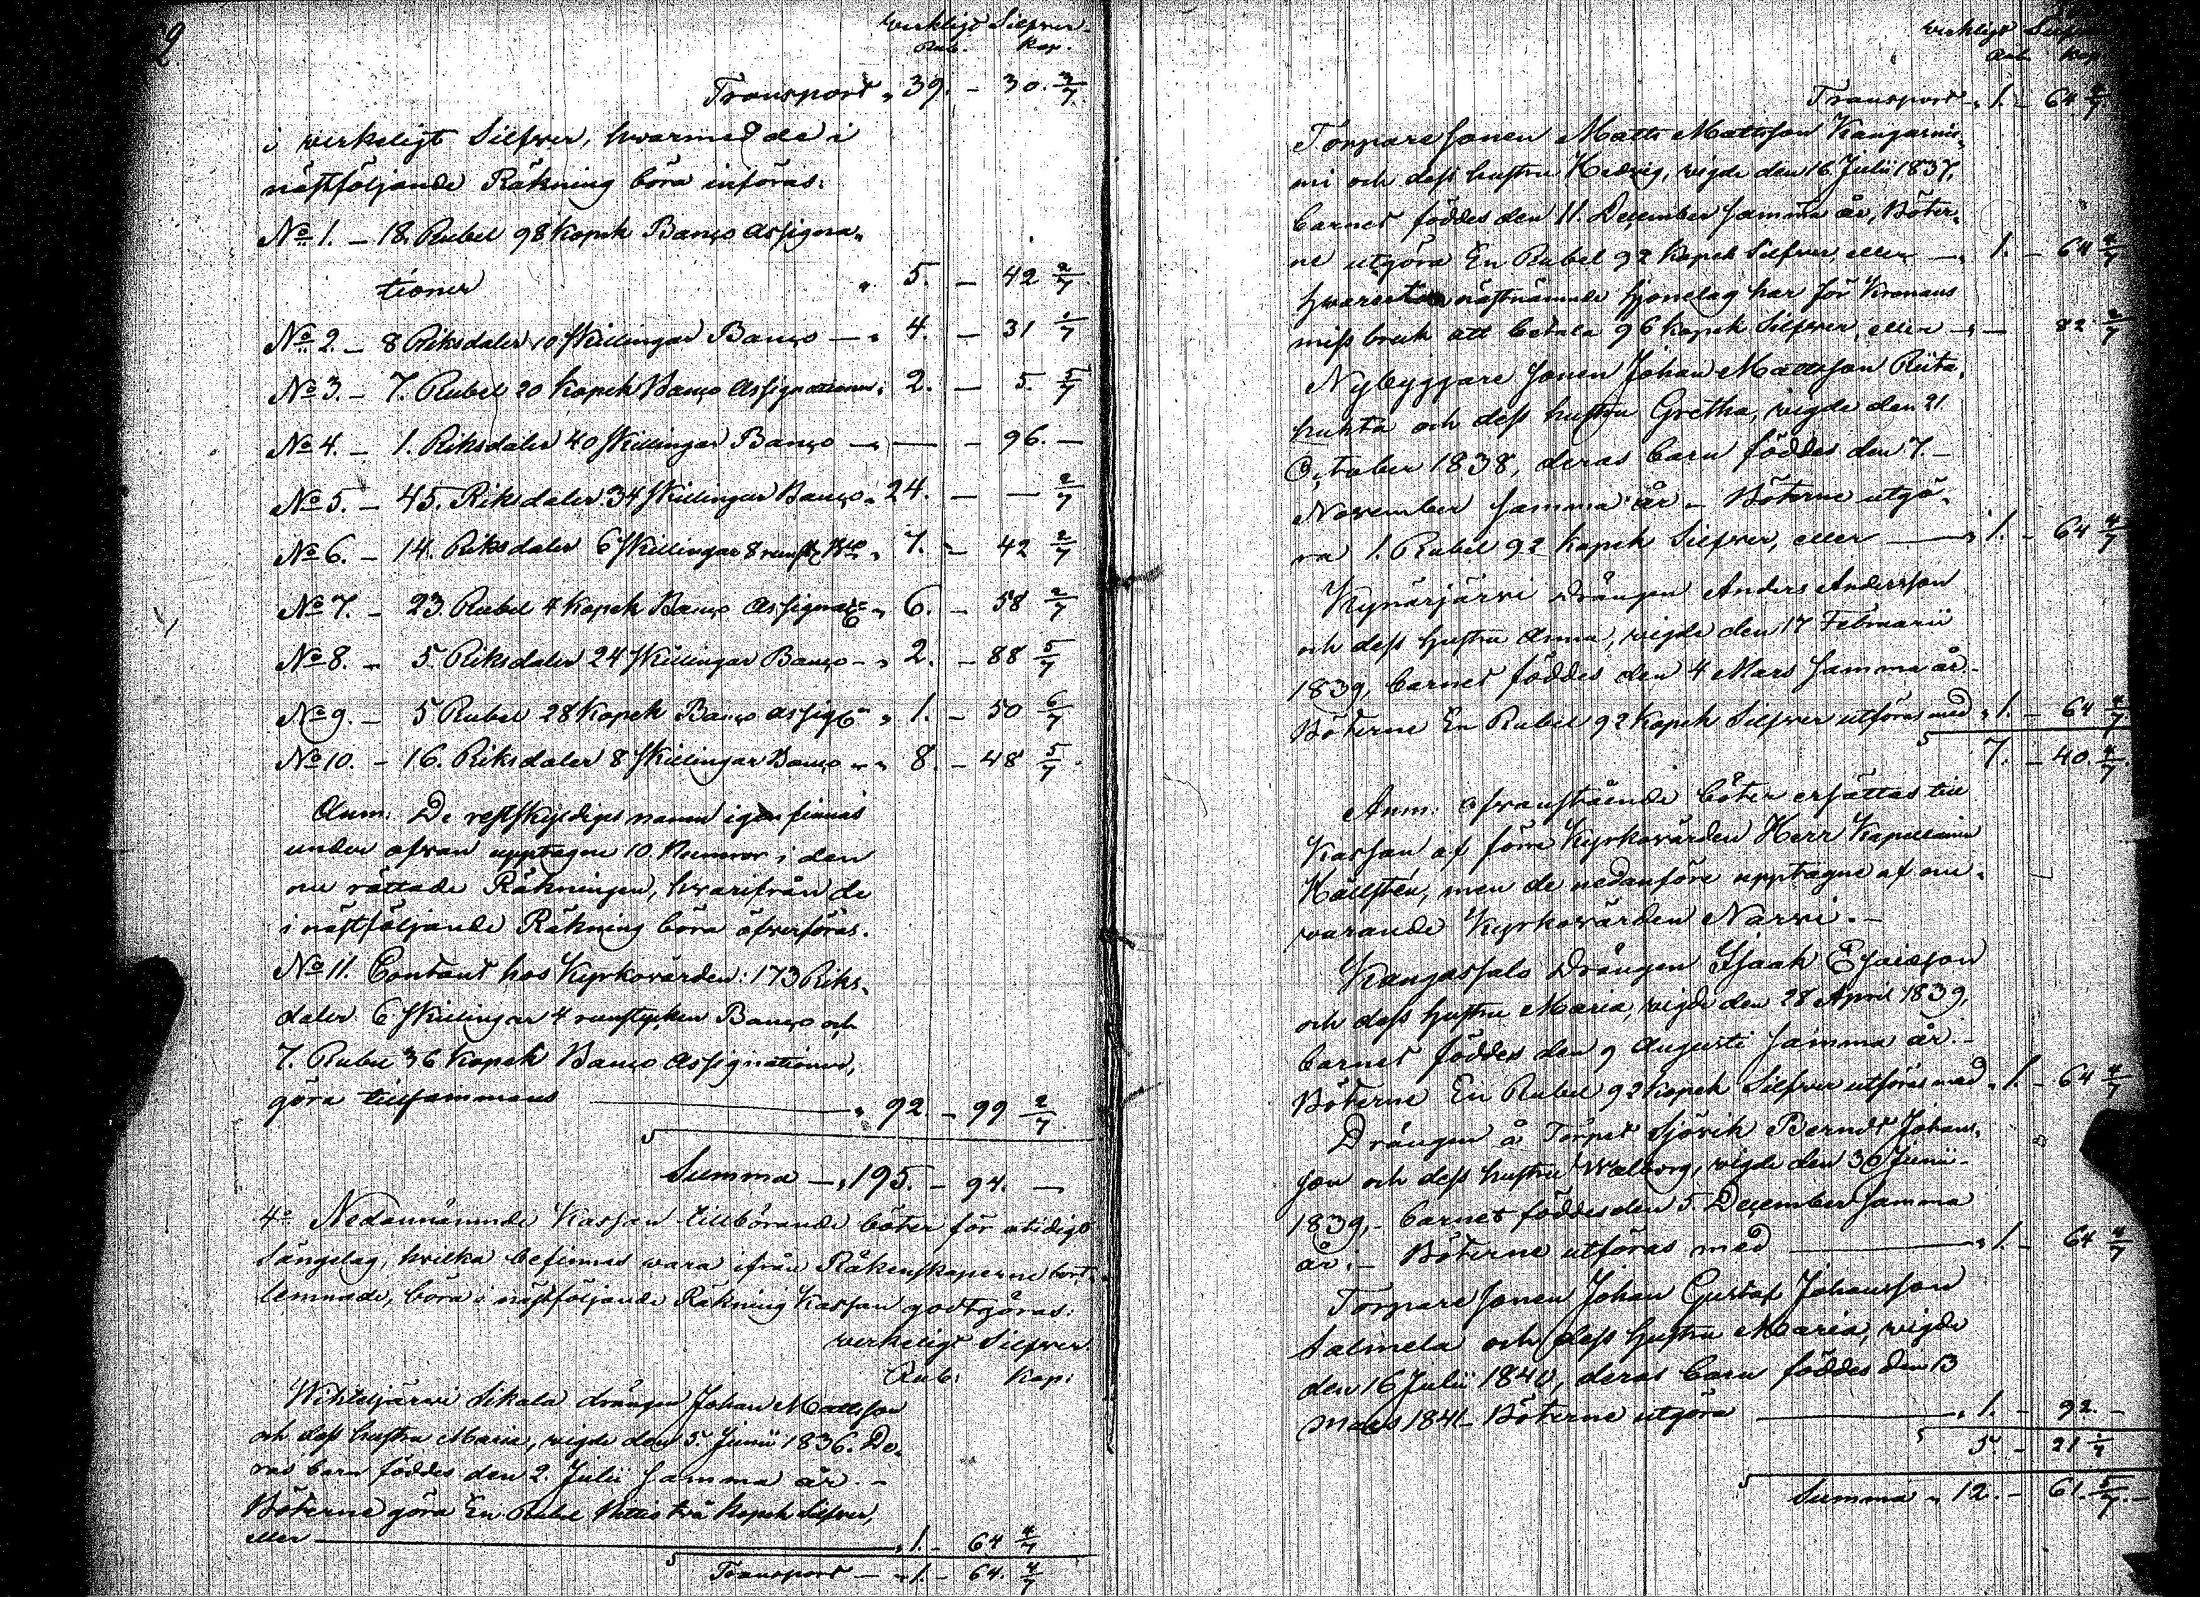 2.
verkligt Silfver.
Rub. Kop.
Transport „ 39. – 30. 3/7.
i verkeligt Silfver, hvarmed de i
nästföljande Räkning böra införas:
No 1. – 18. Rubel 98 Kopek Banco Assigna„
tioner „ 5. – 42 2/7
No 2. – 8 Riksdaler 10 Skillingar Banco — „ 4. – 31 1/7
No 3. – 7. Rubel 20 Kopek Banco Assignationer „ 2. – 5. 5/7
No 4. – 1. Riksdaler 40 Skillingar Banco — „ — – 96. –
No 5. – 45. Riksdaler 34 Skillingar Banco „ 24. – — 2/7
No 6. – 14. Riksdaler 6 Skillingar 8 runst. Bco „ 7. – 42 2/7
No 7. – 23. Rubel 4 Kopek Banco Assignat. „ 6. – 58 2/7
No 8. – 5 Riksdaler 24 Skillingar Banco – „ 2. – 88 5/7
No 9. – 5 Rubel 28 Kopek Banco Assig. „ 1. – 50 6/7
No 10. – 16. Riksdaler 8 Skillingar Banco – „ 8. – 48 5/7.
Anm: De restskyldiges namn igen finnas
under ofvan upptagne 10. Numror i den
nu rättade Räkningen, hvarifrån de
i nästföljande Räkning böra öfverföras.
No 11. Contant hos Kyrkovärden: 173 Riks„
daler 6 Skillingar 4 runstycken Banco och
7. Rubel 36 Kopek Banco Assignationer,
göra tillsammans — „ 92. – 99 2/7
Summa — „ 195. – 94. —
4o Nedannämnde Kassan tillhörande böter för otidigt
sängelag, hvilka befinnas vara ifrån Räkenskaperne bort„
lemnade, böra i nästföljande Räkning Kassan godtgöras:
verkeligt Silfver.
Rub: Kop:
Sikala drängen Johan Mattsson
och dess hustru Maria, vigde den 5. Junii 1836. De„
ras barn föddes den 2. Julii samma år. –
Böterne göra En Rubel Nittio två Kopek Silfver,
eller — „ 1. – 64 4/7
Transport — „ 1. – 64. 4/7
verkligt Silfver
Rub. Kop.
Transport „ 1. – 64 4/7
Torparesonen Matts Mattsson Kangarnie„
mi och dess hustru Hedvig, vigde den 16 Julii 1837,
barnet föddes den 11. December samma år, Böter„
ne utgöra En Rubel 92 Kopek Silfver, eller — „ 1. – 64 4/7
nästnämnde Hjonelag har för Kronans
missbruk att betala 96 Kopek Silfver, eller — „ — 82 2/7
Nybyggare sonen Johan Mattsson Riita„
huhta och dess hustru Gretha, vigde den 21
October 1838, deras barn föddes den 7. –
November samma år – Böterne utgö„
ra 1. Rubel 92 Kopek Silfver, eller — „ 1. – 64 4/7
Kynärjärvi drängen Anders Andersson
och dess hustru Anna, vigde den 17 Februarii
1839, barnet föddes den 4 Mars samma år.
Böterne En Rubel 92 Kopek Silfver utföras med „ 1. – 64 4/7
7. – 40. 4/7.
Anm: ofvanstående böter ersättas till
Kassan af förre Kyrkovärden Herr Kapellanen
Hällstén, men de nedanföre upptagne af nu„
varande Kyrkovärden Narvi. –
Kangassalo drängen Isaak Esaiasson
och dess hustru Maria, vigde den 28 April 1839,
barnet föddes den 9 Augusti samma år. –
Böterne En Rubel 92 Kopek Silfver utföras med „ 1. – 64 4/7
Drängen å Torpet Sjövik Berndt Johans„
son och dess hustru Walborg, vigde den 30 Junii
1839, – barnet föddes den 5. December samma
år. – Böterne utföras med — „ 1. – 64 4/7
Torparesonen Johan Gustaf Johansson
Salmela och dess hustru Maria, vigde
den 16 Julii 1840, deras barn föddes den 13
Mars 1841 – Böterne utgöra — „ 1. – 92. –
5. – 21 1/7
Summa „ 12. – 61. 5/7. –